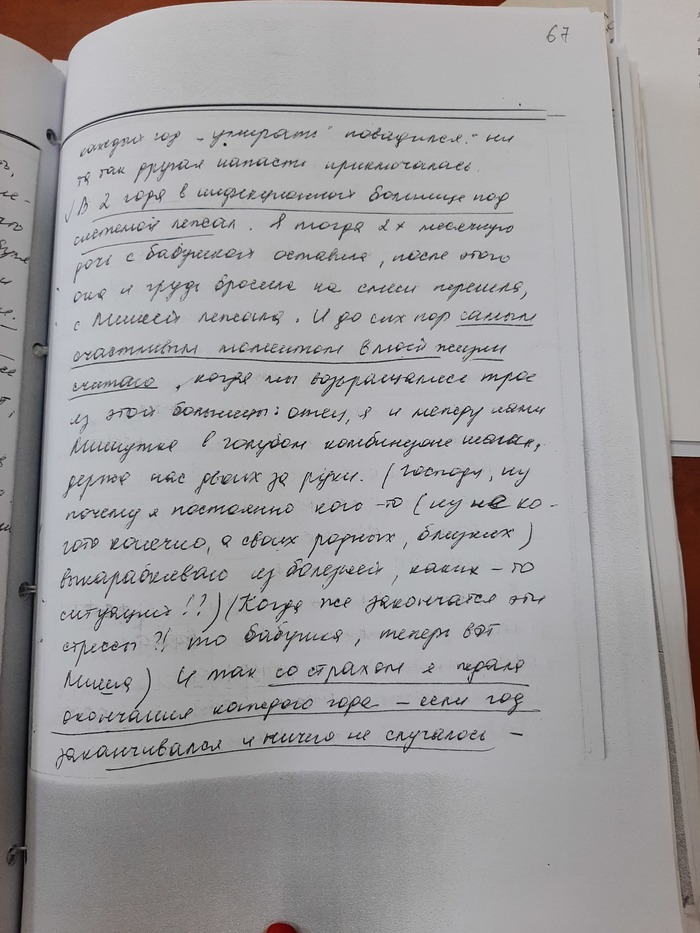 67
каждый год „умирать" повадился: не
та так другая напасть приключалась.
√ В 2 года в инфекционной больнице под
системой лежал. Я тогда 2х месячную
дочь с бабушкой оставила, после этого
она и грудь бросила на смеси перешла,
с Мишей лежала. И до сих пор самым
счастливым моментом в моей жизни
считаю, когда мы возвращались трое
из этой больницы: отец, я и между нами
Мишутка в голубом комбинезоне шагал,
держа нас двоих за руки. (Господи, ну
почему я постоянно кого-то (ну не ко-
гото конечно, а своих родных, близких)
выкарабкиваю из болезней, каких-то
ситуаций!?) (Когда же закончатся эти
стрессы?! то бабушка, теперь вот
Миша) И так со страхом я ждала
окончания каждого года – если год
заканчивался и ничего не случалось –